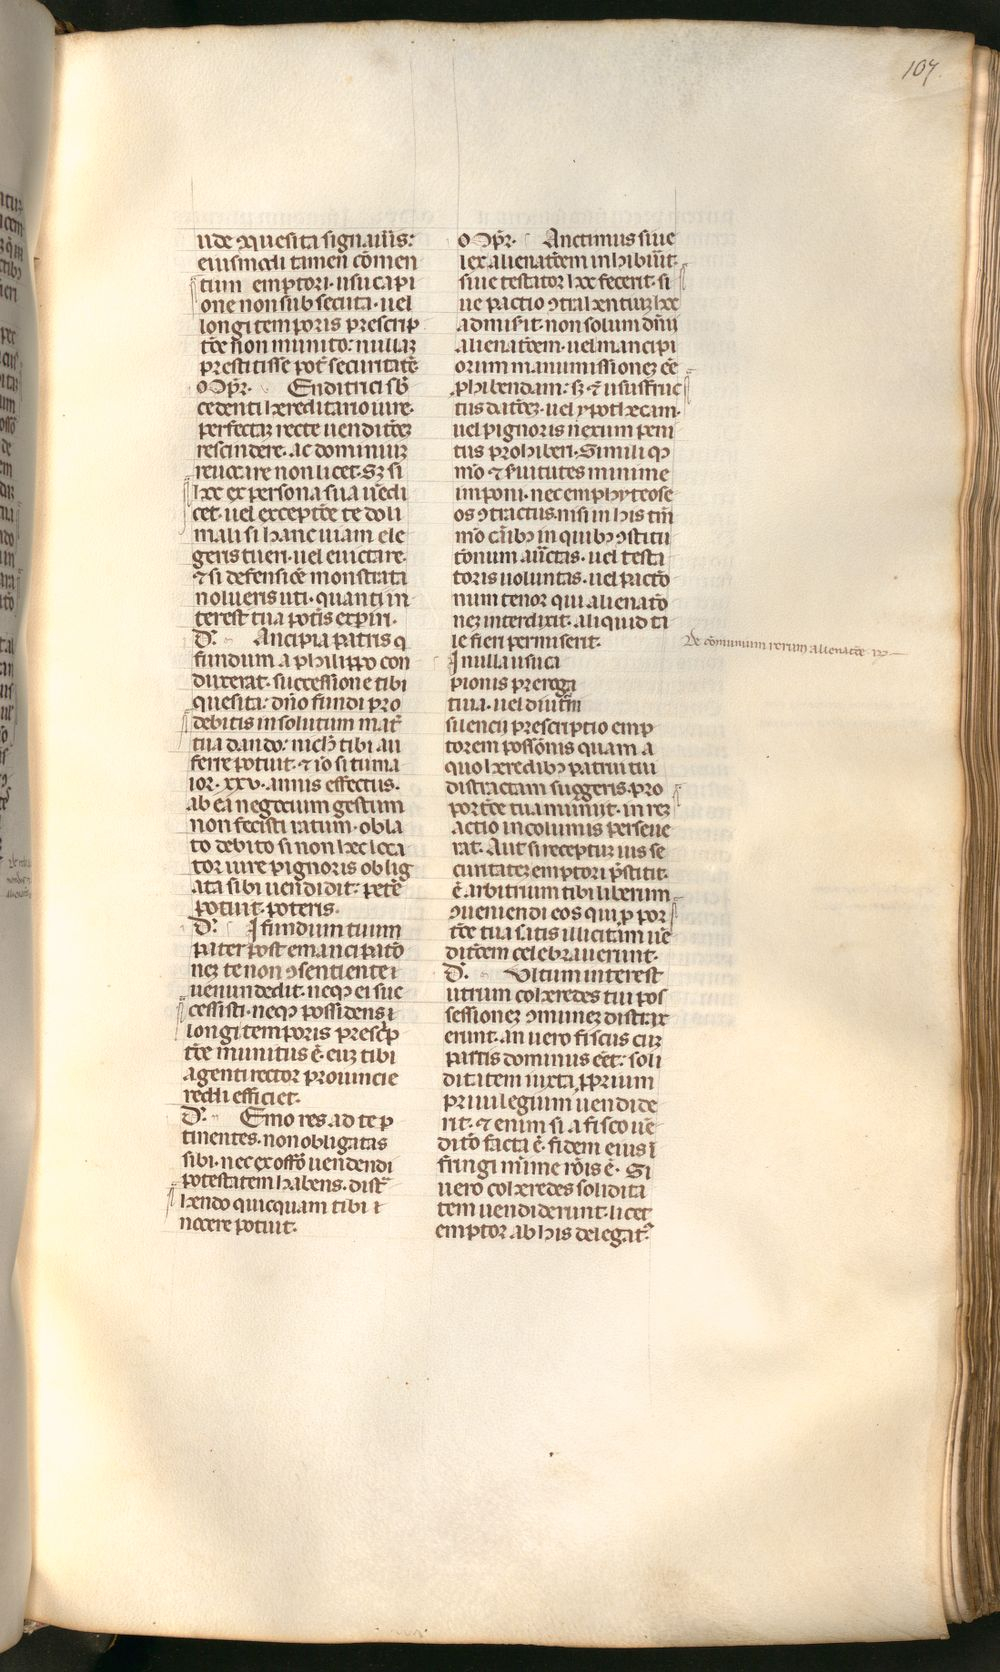 107
ude ꝯquesita signauūs:
eiusmodi tamen cōmen
tum emptori· usucapi
one non sub secuta· uel
longi temporis prescrip
tōe non munito: nullaꝫ
prestitisse pot̄ securitatē·
o Op̄r· Enditrici sb̄
cedenti hereditario iure·
perfectaꝫ recte uenditōeꝫ
rescindere· ac dominiuꝫ
reuocare non licet· Sꝫ si
hoc ex persona sua uēdi
cet· uel exceptōe te doli
mali si hanc uiam ele
geris tueri· uel euictare·
⁊ si defensiōē monstrata
nolueris uti· quanti in
terest tua potis exp̄iri·
D· Ancipia patris q
fundum a philippo con
duxerat· successione tibi
quesita: dn̄o fundi pro
debitis in solutum mat̄
tua dando: nich̄ tibi au
ferre potuit· ⁊ iō si tu ma
ior· xxv· annis effectus·
ab ea negocium gestum
non fecisti ratum· obla
to debito si non hec loca
tor iure pignoris oblig
ata sibi uendidit: petē
potuit· poteris·
D· I fundum tuum
pater post emancipatō
neꝫ te non ꝯsentiente ī
uenundedit· neqꝫ ei suc
cessisti· neqꝫ possidens ī
longi temporis presc̄p
tōe munitus ē· euꝫ tibi
agenti rector prouincie
reddi efficiet·
D· Emo res ad te ꝑ
tinentes· non obligatas
sibi· nec ex offō uendendi
potestatem habens· distr̄
hendo quicquam tibi ī
nocere potuit·
o Op̄r· Anctimus siue
lex alienatōem inhibūit·
siue testator hoc fecerit· si
ue pactio ꝯtrahentiuꝫ hoc
admisit· non solum dn̄ii
alienatōem· uel mancipi
orum manumissioneꝫ eē
ꝓhibendam: sꝫ ⁊ ususfruc
tus datōeꝫ· uel ypothecam·
uel pignoris nexum peni
tus prohiberi· Simili qꝫ
mō ⁊ ſuitutes minime
imponi· nec emphyteose
os ꝯtractus· nisi in his tm̄
mō cāibꝫ in quibꝫ ꝯstitu
tonum auc̄tas· uel testa
toris uoluntas· uel pactō
num tenor qui alienatō
neꝫ interdixit· aliquid ta
le fieri permiserit·
De cōmunium rerum alienatōe
I nulla usuca
pionis preroga
tiua· uel diut̄ni
silencii prescriptio emp
torem possōnis quam a
quo heredibꝫ patrui tui
distractam suggeris· pro
portōe tua muniit· in reꝫ
actio incolumis perseue
rat· Aut si receptuꝫ ius se
curitateꝫ emptori p̄stitit·
ē arbitrium tibi liberum
ꝯueniendi eos qui ꝓ por
tōe tua satis illicitam uē
ditōem celebrauerunt·
D· Vltum interest
utrum coheredes tui pos
sessioneꝫ ꝯmuneꝫ distrax
erunt· an uero fiscus cuꝫ
partis dominus eēt· soli
ditatem iuxta ꝓprium
priuilegium uendide
rit· ⁊ enim si a fisco uē
ditō facta ē· fidem eius ī
fringi mīme rōis ē· Si
uero coheredes solidita
tem uendiderunt· licet
emptor ab his delegat᾽